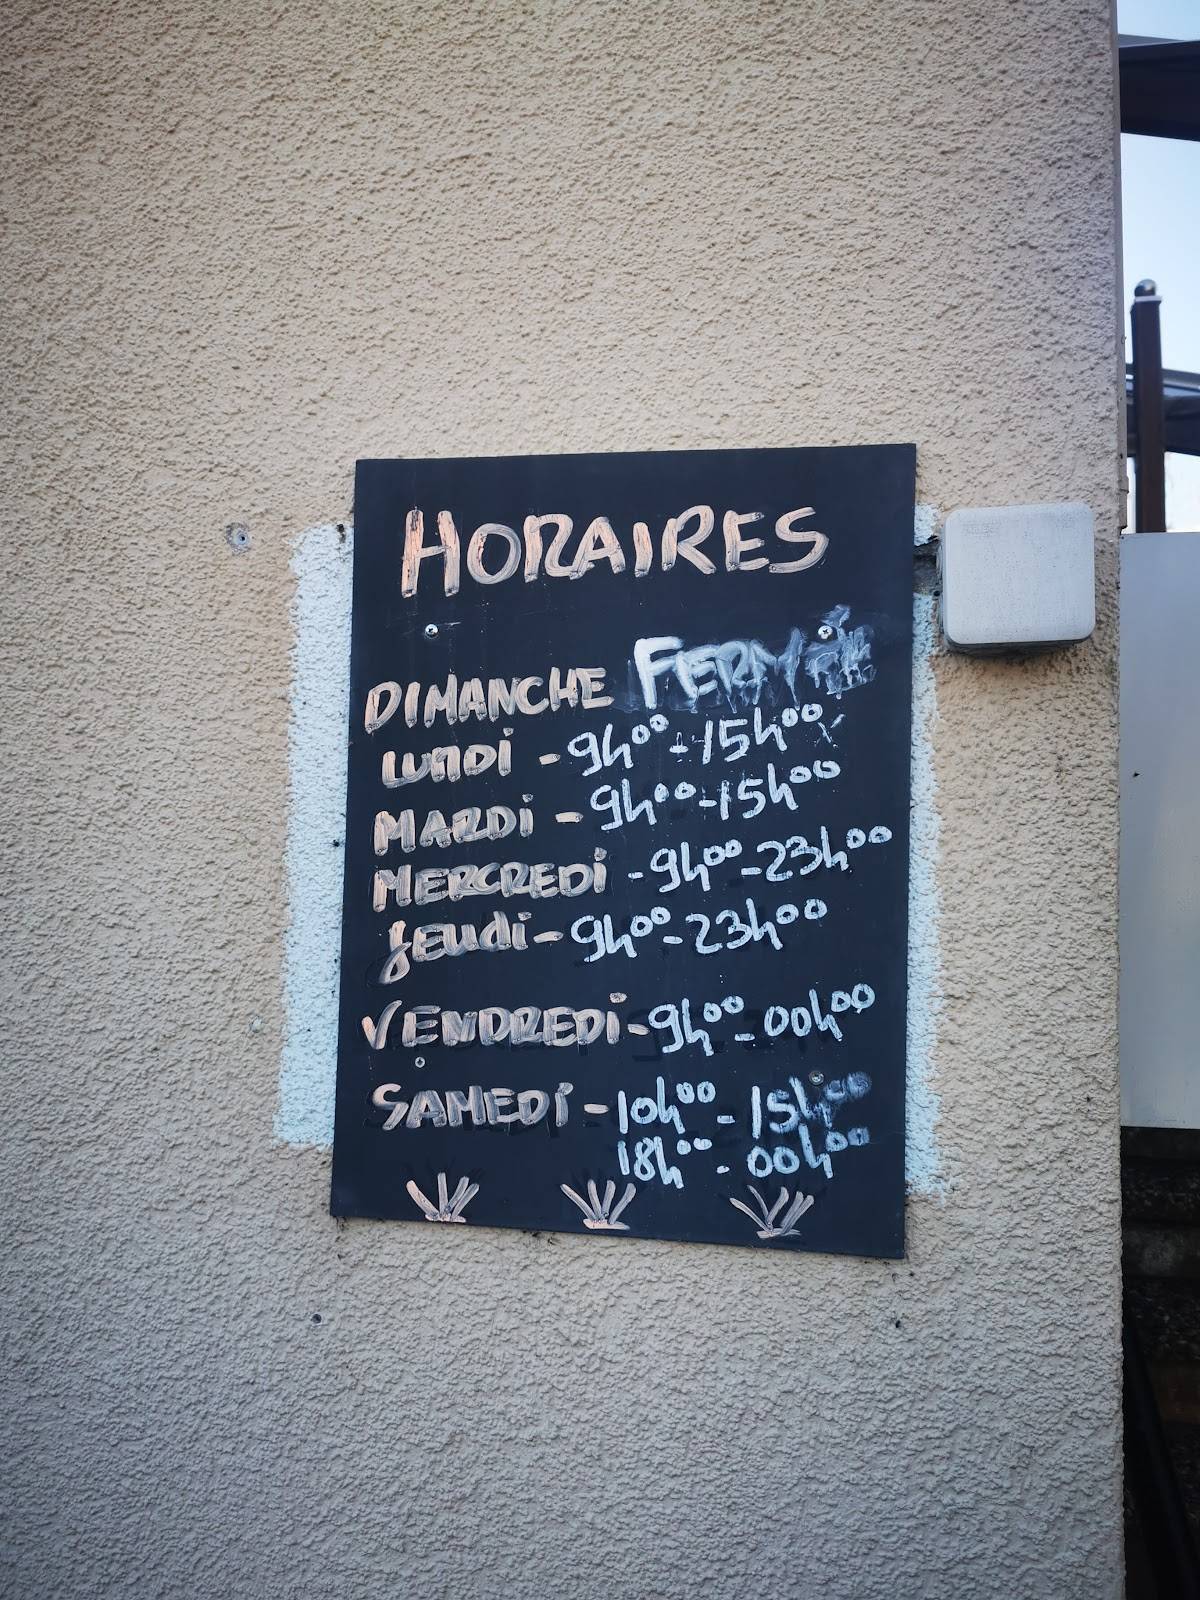 HORAIRES
DIMANCHE FERMÉ
LUNDI - 9h00 - 15h00
MARDI - 9h00 - 15h00
MERCREDI - 9h00 - 23h00
Jeudi - 9h00 - 23h00
VENDREDI - 9h00 - 00h00
SAMEDI - 10h00 - 15h00
18h00 - 00h00